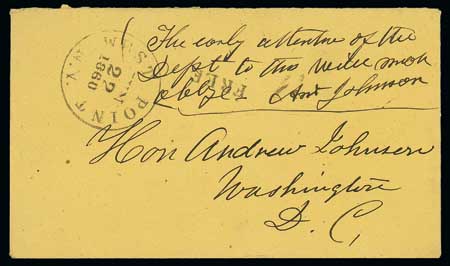 WEST POINT. N.Y.
JUN
22
1860
FREE
The early attention of the
Dept. to this will much
oblige And Johnson
Hon Andrew Johnson
Washington
D. C,